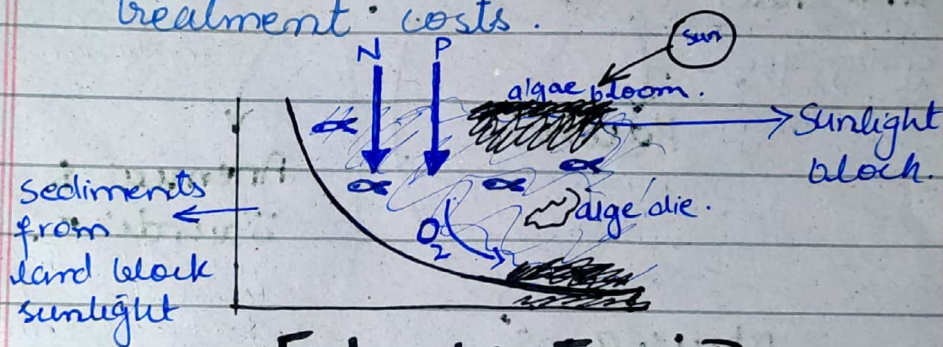 treatment costs.
Sun
N P
algae bloom.
Sunlight
block.
sediments
from
land block
sunlight
alge die.
O2